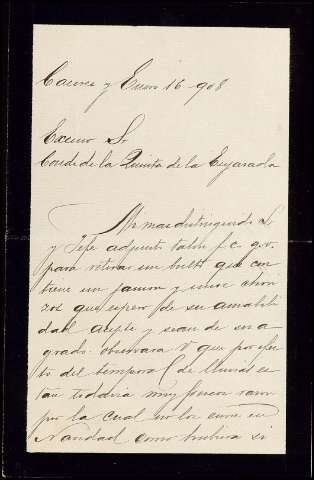 Caceres y Enero 16-908
Excmo Sr
Conde de la Quinta de la Enjarada
Mi mas distinguido Sr
y Jefe adjunto talon f.c. g.v.
para retirar un bulto que con
tiene un jamon y unos chori
zos que espero de su amabili
dad acepte y sean de su a
grado. observara V que por efec
to del temporal de lluvias es
tan todavia muy frescos razon
por la cual no los envie en
Navidad como hubiera si